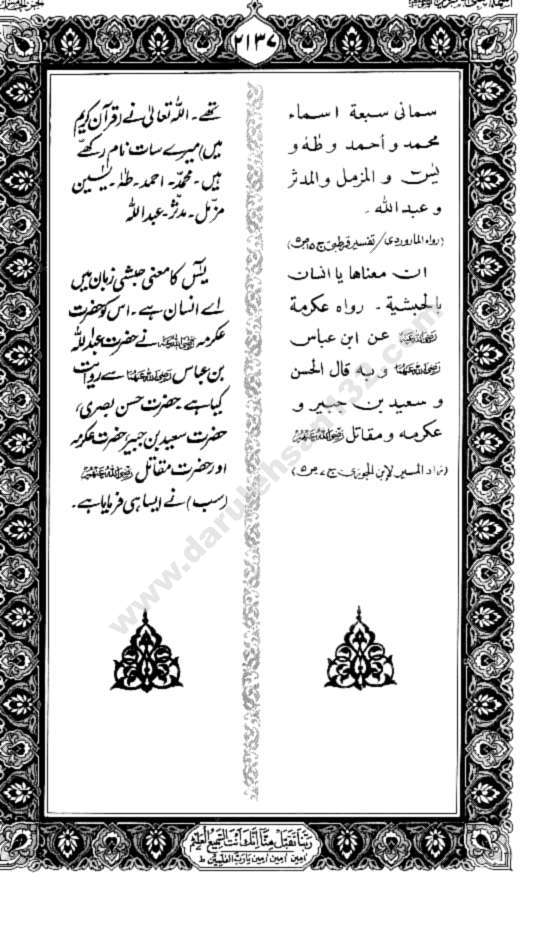 ۲۱۳۷
سمانى سبعة اسماء
محمد و أحمد و طٰهٰ و
يٰسٓ و المزمل والمدثر
و عبد الله ـ
(رواه الماروردى/تفسير قرطبى ج ۱۵ ص ۵)
ان معناها يا انسان
بالحبشية ـ رواه عكرمة
رضی اللہ عنہ عن ابن عباس
رضی اللہ عنہما و به قال الحسن
و سعيد بن جبير و
عكرمه و مقاتل رضی اللہ عنہم
(زاد المسير لابن الجوزى ج ۷ ص ۵)
تھے۔ اللہ تعالیٰ نے (قرآن کریم
میں) میرے سات نام رکھے
ہیں۔ محمدؐ۔ احمد۔ طٰہٰ۔ یٰسین
مزمل۔ مدثر۔ عبد اللہ
یٰسٓ کا معنی حبشی زبان میں
اے انسان ہے۔ اس کو حضرت
عکرمہ رضی اللہ عنہ نے حضرت عبداللہ
بن عباس رضی اللہ عنہما سے روایت
کیا ہے۔ حضرت حسن بصری،
حضرت سعید بن جبیر، حضرت عکرمہ
اور حضرت مقاتل رضی اللہ عنہم
(سب) نے ایسا ہی فرمایا ہے۔
ربنا تقبل منا انك انت السميع العليم
امين امين امين يا رب العلمين ط